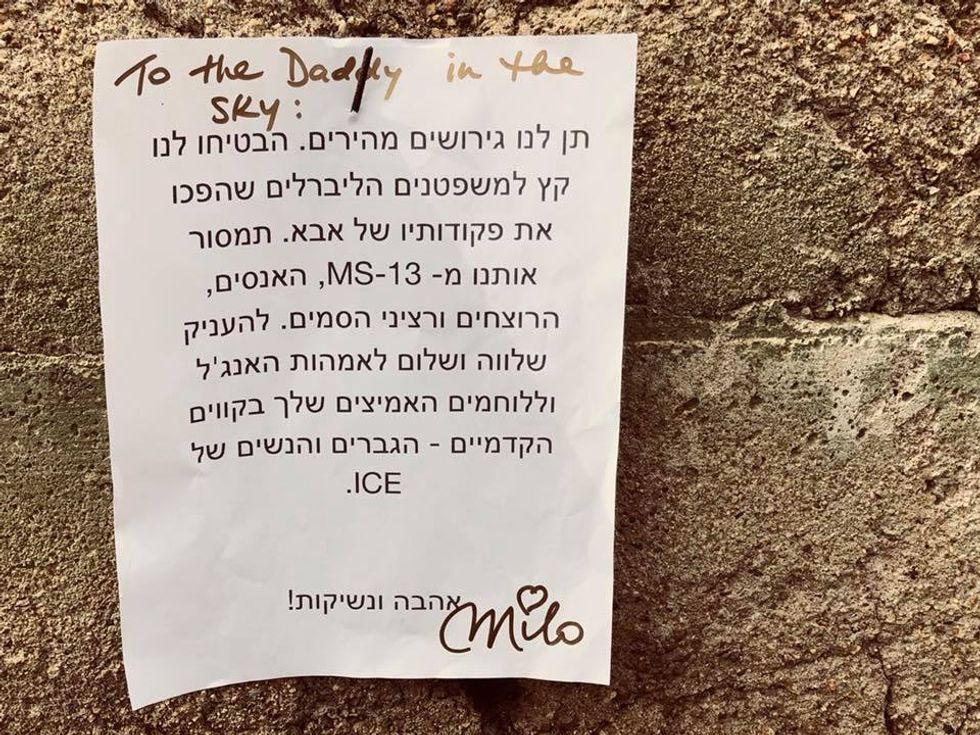 To the Daddy in the
SKY:
תן לנו גירושים מהירים. הבטיחו לנו
קץ למשפטנים הליברלים שהפכו
את פקודותיו של אבא. תמסור
אותנו מ- MS-13, האנסים,
הרוצחים ורציני הסמים. להעניק
שלווה ושלום לאמהות האנג'ל
וללוחמים האמיצים שלך בקווים
הקדמיים - הגברים והנשים של
ICE.
אהבה ונשיקות!
Milo